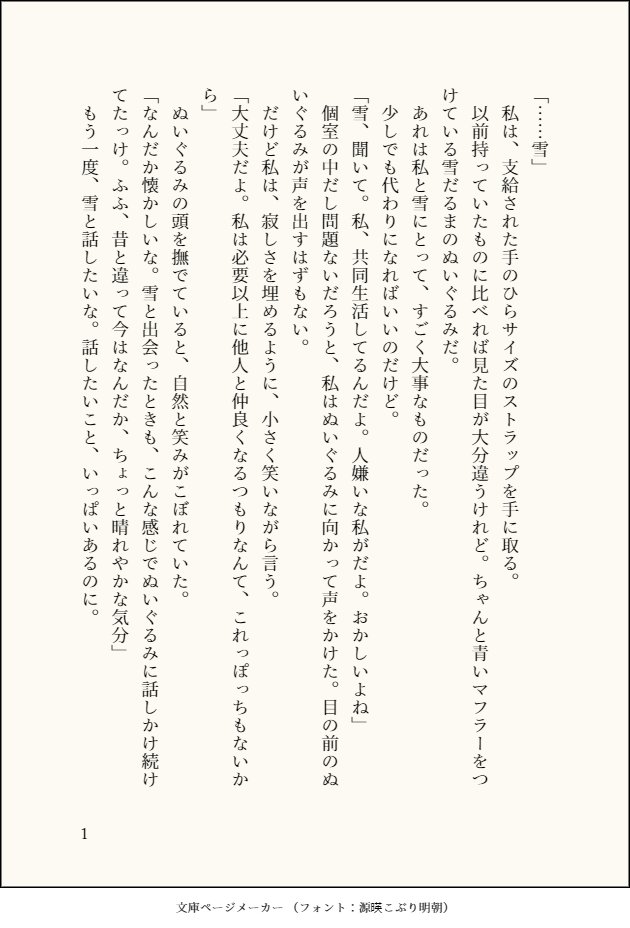 「……雪」
　私は、支給された手のひらサイズのストラップを手に取る。
　以前持っていたものに比べれば見た目が大分違うけれど。ちゃんと青いマフラーをつ
けている雪だるまのぬいぐるみだ。
　あれは私と雪にとって、すごく大事なものだった。
　少しでも代わりになればいいのだけど。
「雪、聞いて。私、共同生活してるんだよ。人嫌いな私がだよ。おかしいよね」
　個室の中だし問題ないだろうと、私はぬいぐるみに向かって声をかけた。目の前のぬ
いぐるみが声を出すはずもない。
　だけど私は、寂しさを埋めるように、小さく笑いながら言う。
「大丈夫だよ。私は必要以上に他人と仲良くなるつもりなんて、これっぽっちもないか
ら」
　ぬいぐるみの頭を撫でていると、自然と笑みがこぼれていた。
「なんだか懐かしいな。雪と出会ったときも、こんな感じでぬいぐるみに話しかけ続け
てたっけ。ふふ、昔と違って今はなんだか、ちょっと晴れやかな気分」
　もう一度、雪と話したいな。話したいこと、いっぱいあるのに。
1
文庫ページメーカー（フォント：源暎こぶり明朝）